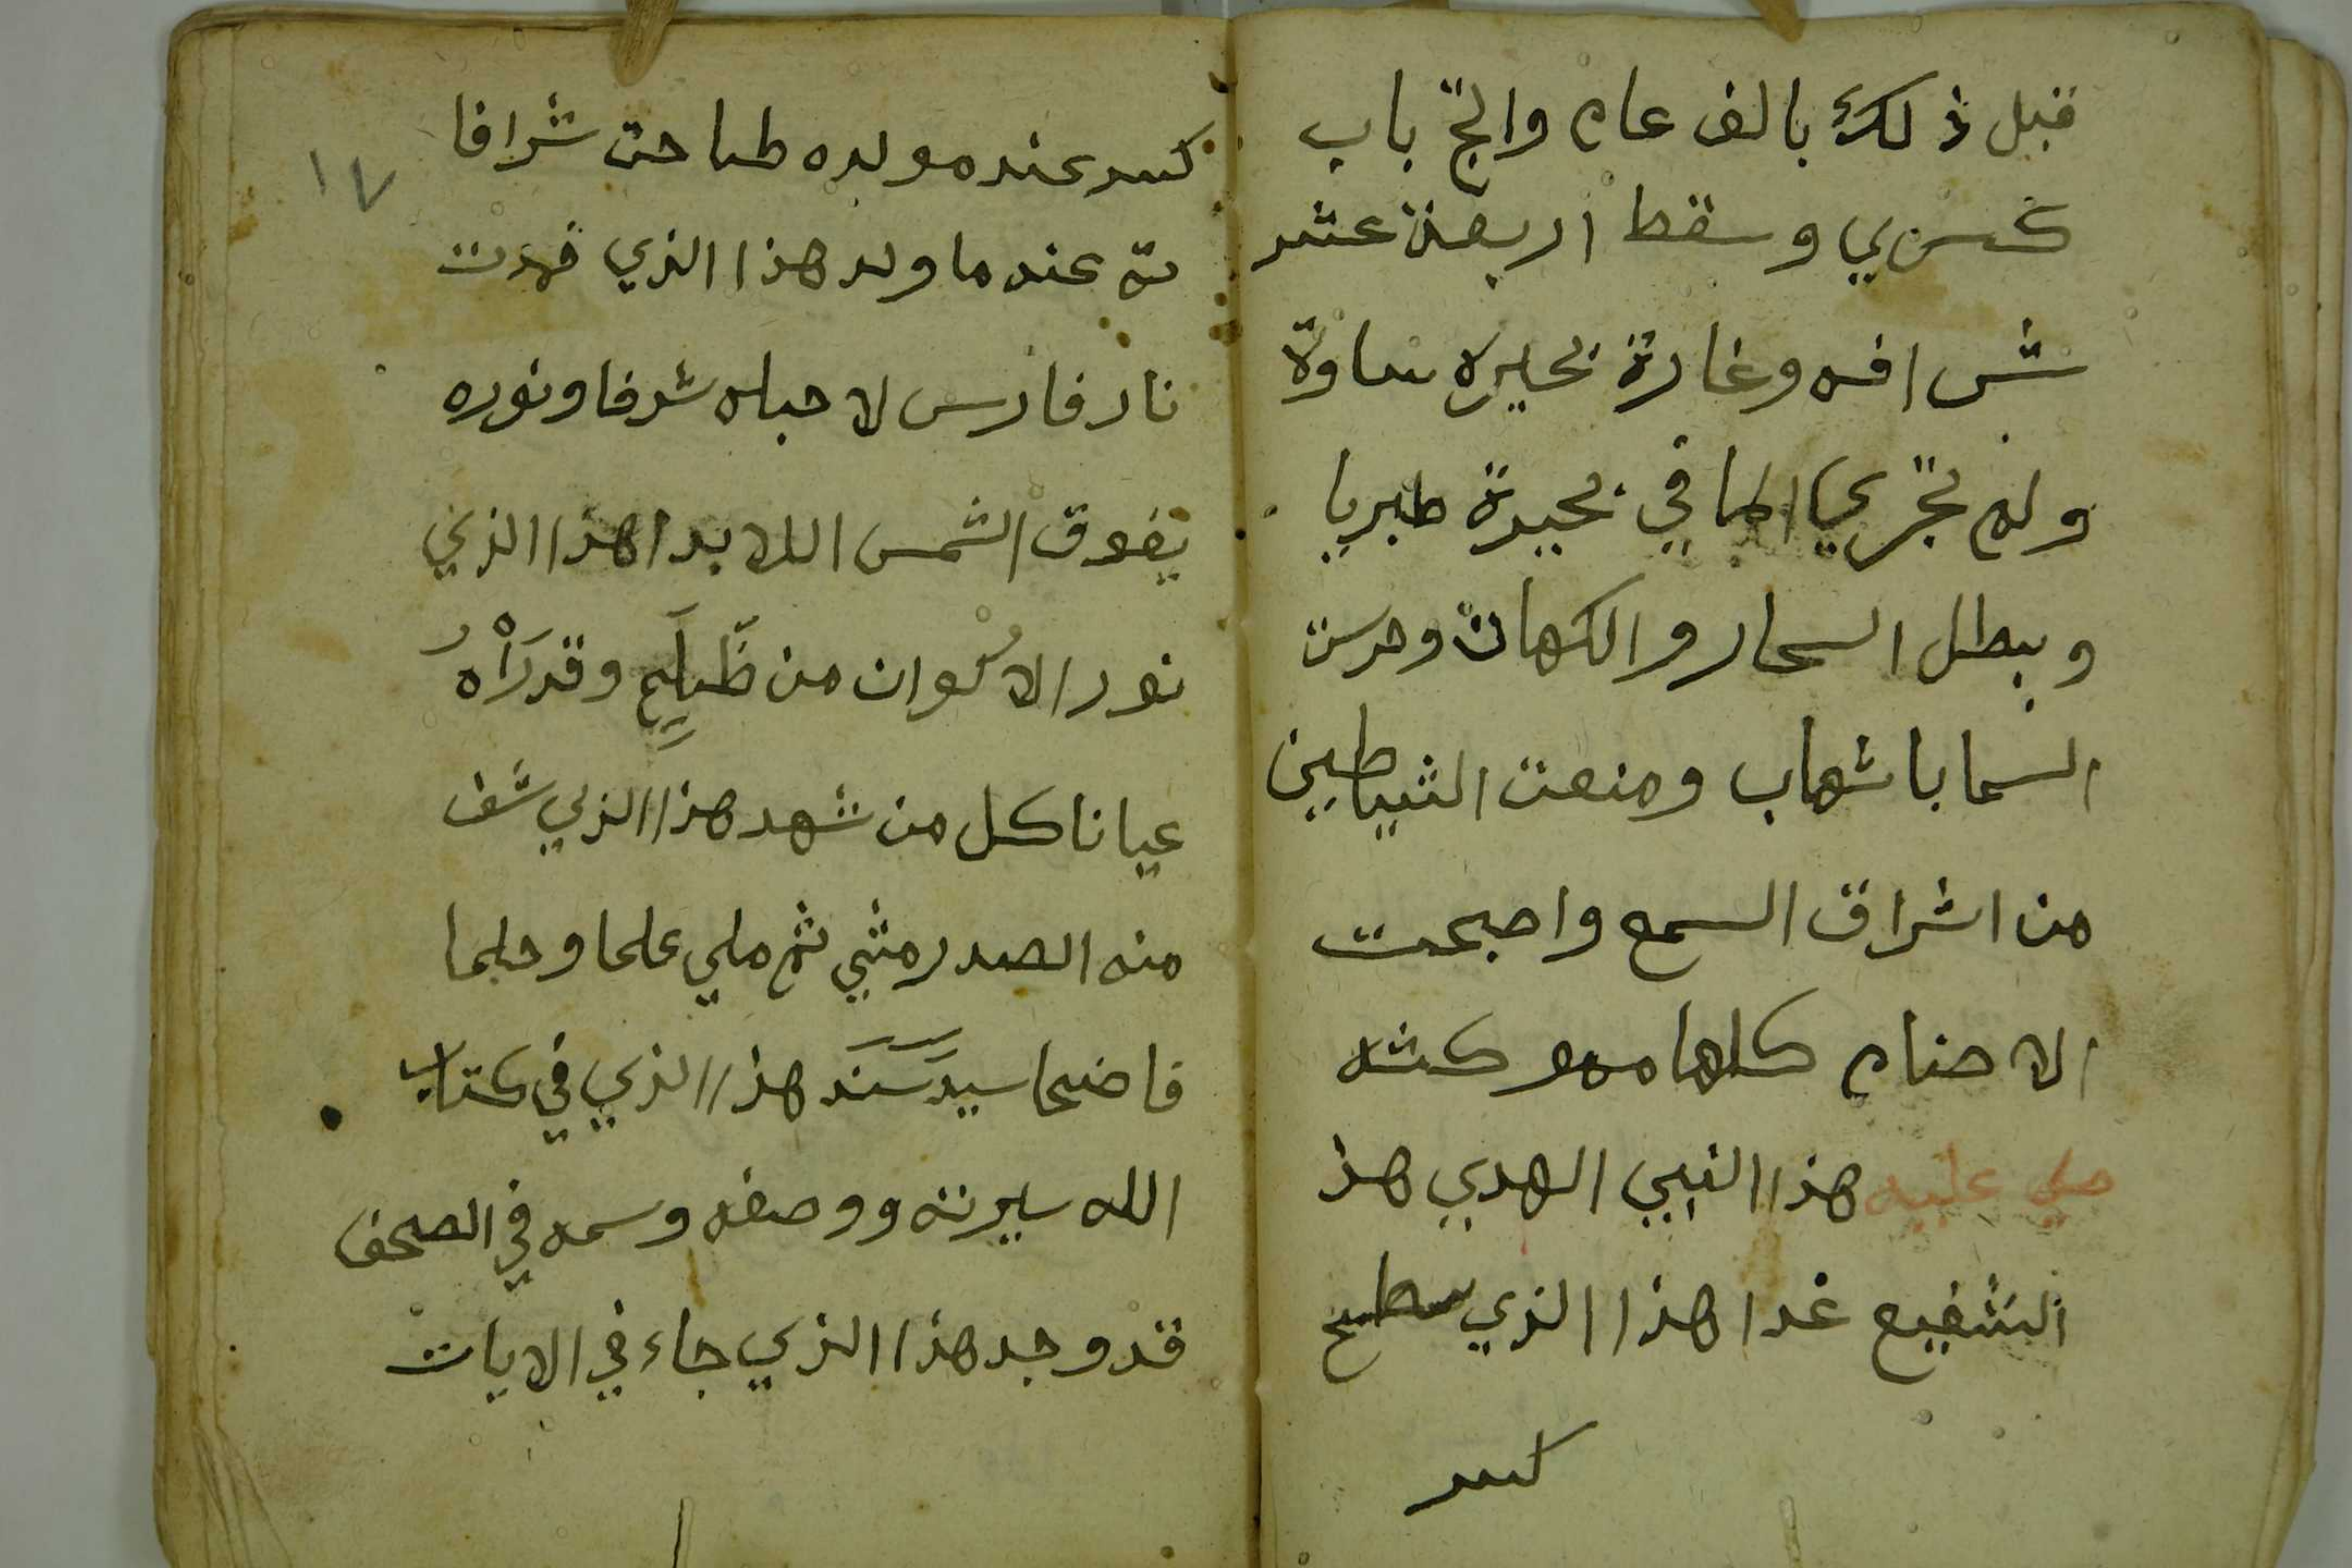 قبل ذلك بالف عام وانتج باب
كسري وسقط اربعة عشر
شرافه وغارة بحيره ساوة
ولم تجري الما في بحيرة طبريا
وبطل السحار والكهانة وحرست
السما باشهاب ومنعت الشياطين
من اشراق السمع واصبحت
الاصنام كلها منو كسه
صلي عليه هذا النبي الهدي هذ
الشفيع غدا هذا الذي سطيح
كسر
١٧
كسر عند مولده طاحت شرافا
ته عند ما ولد هذا الذي خمدت
نار فارس لاجله شرفا ونوره
يفوق الشمس اللا بدا هذا الذي
نور الاكوان من وقد رَأْهُ
عيانا كل من شهد هذا الذي شف
منه الصدر مثي ثم ملي علما وحلما
فاضحا سيد سند هذا الذي في كتاب
الله سيرته ووصفه وسمه في الصحف
قد وجد هذا الذي جاء في الايات